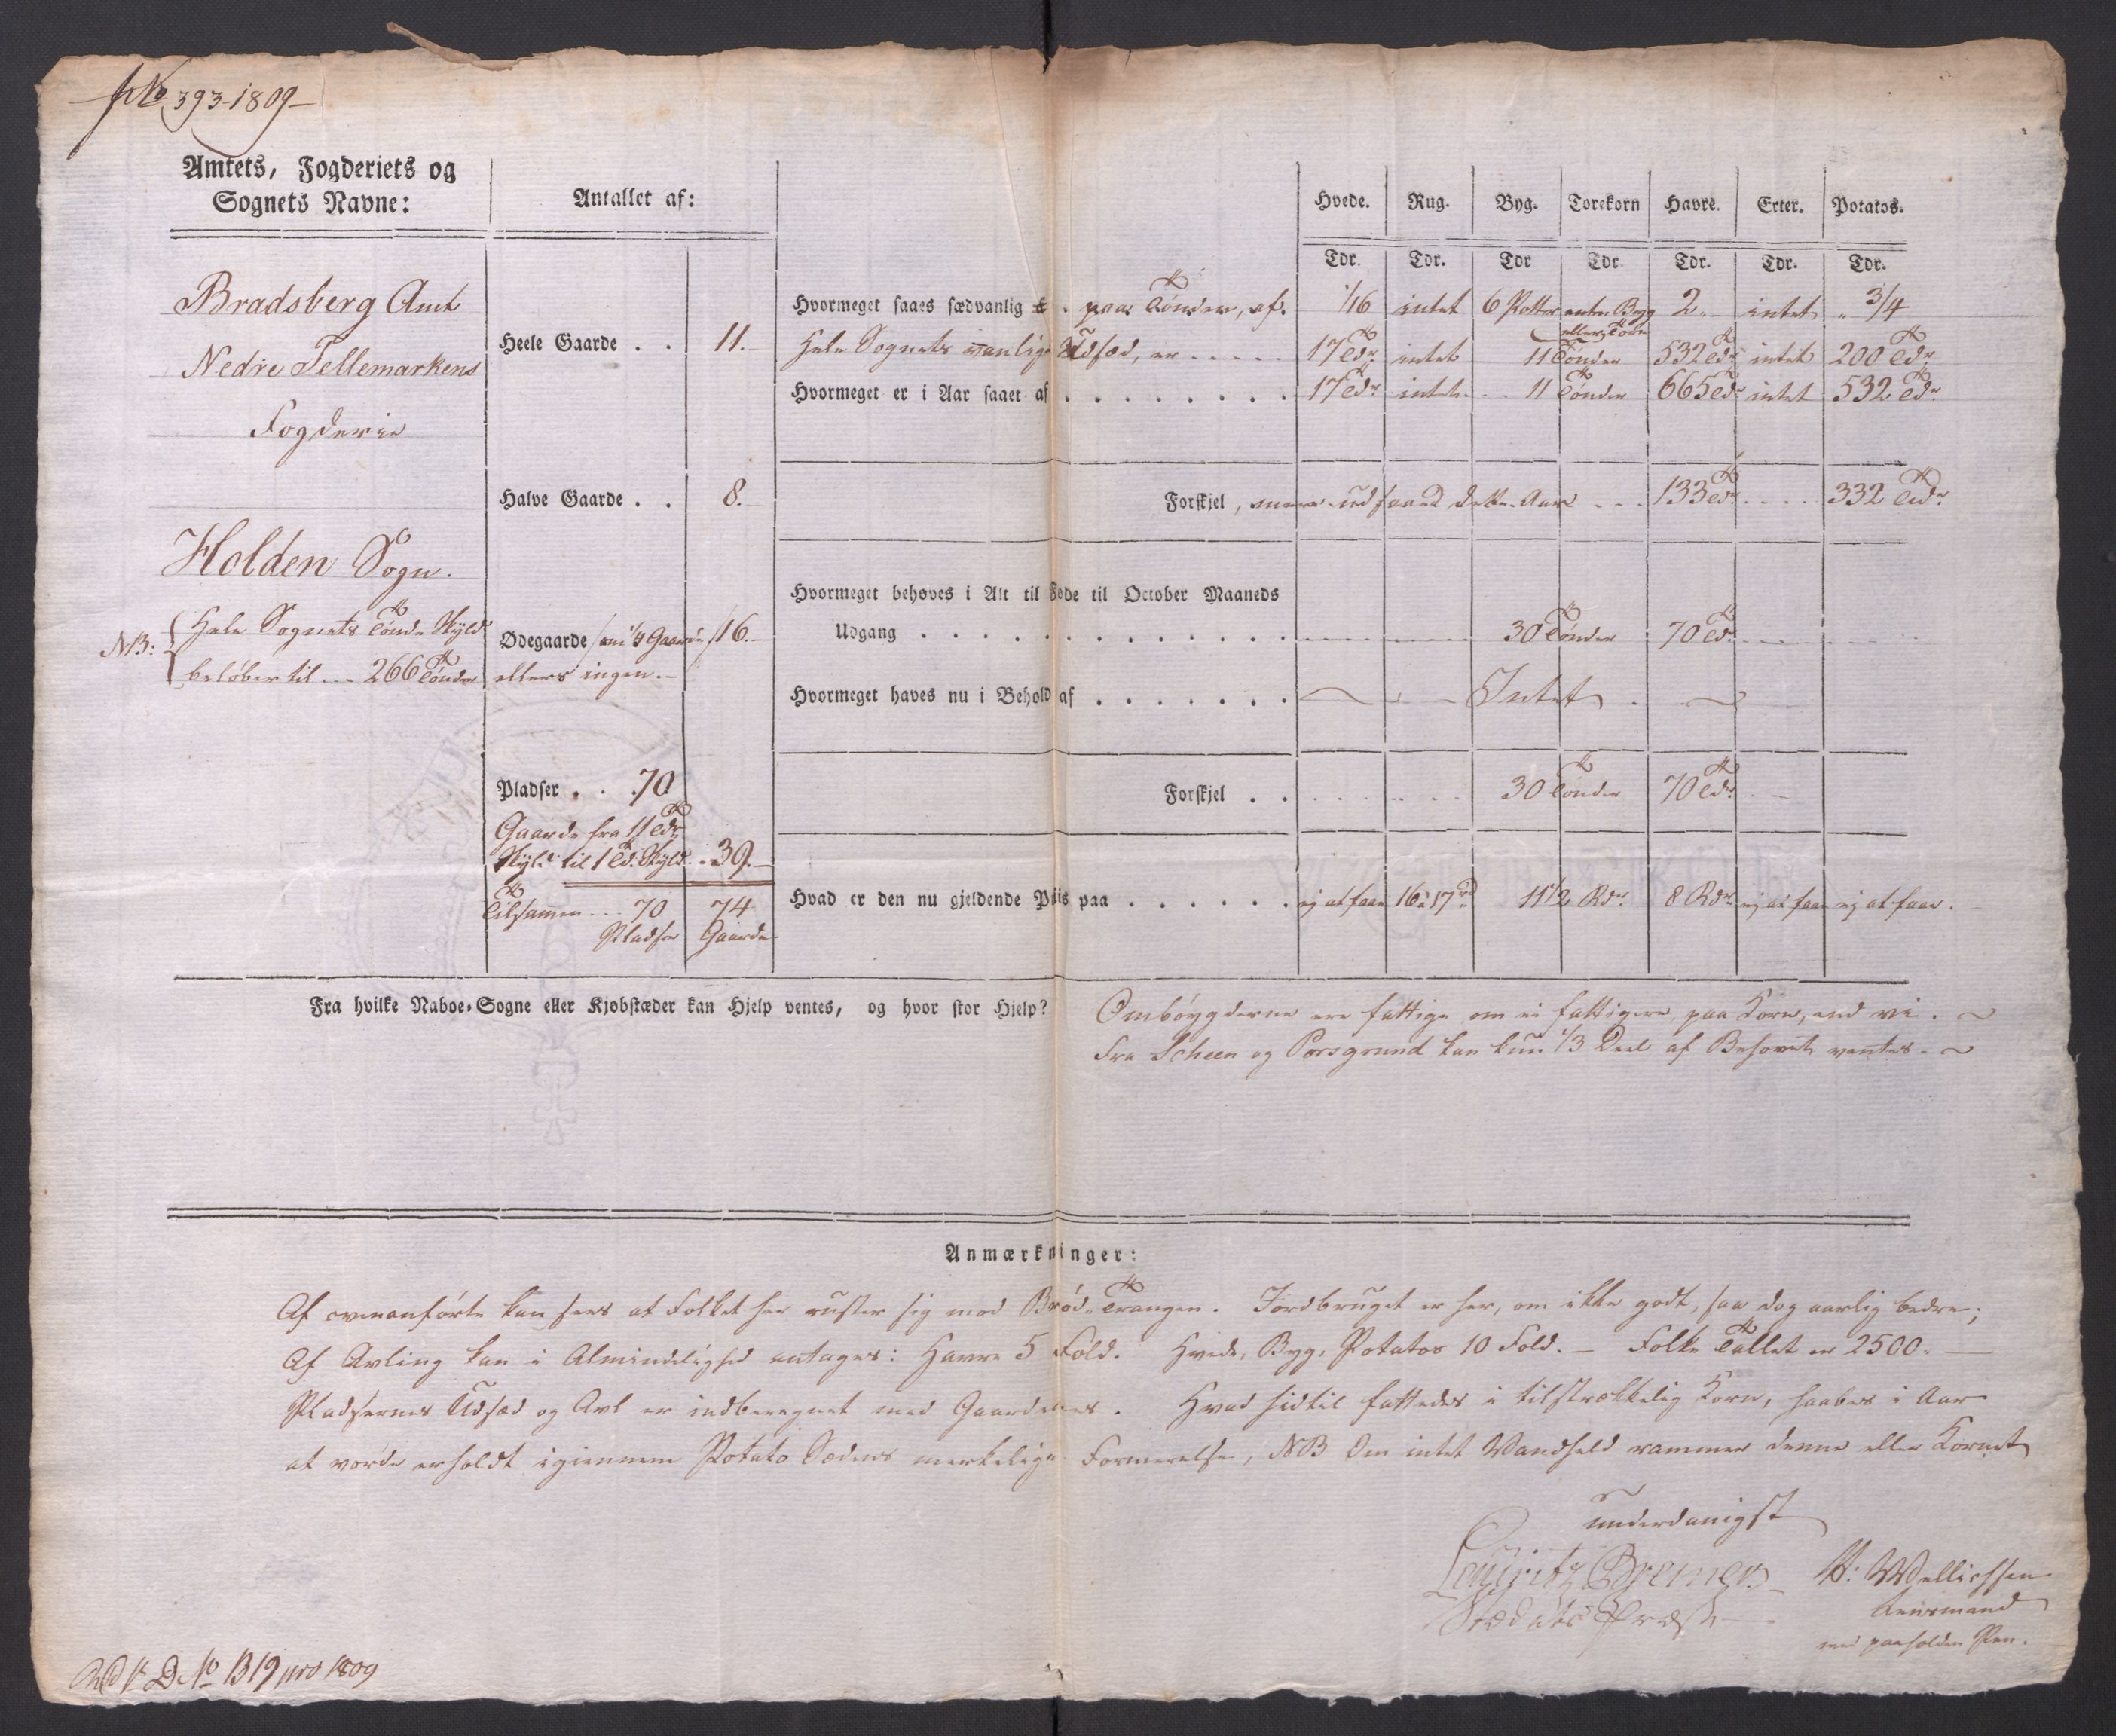 No 393-1809
Amtets, Fogderiets og
Sognets Navne:
Antallet af:
Hvede. Rug. Byg. Torekorn Havre. Erter. Potatos.
Tdr. Tdr. Tdr Tdr. Tdr. Tdr. Tdr.
Bradsberg Amt
Nedre Tellemarkens
Fogderie
Holden Sogn.
NB: Hele Sognets Tønde Skyld
beløber til --- 266 Tønder
Heele Gaarde . . 11.
Halve Gaarde . . 8.
Ødegaarde som 1/4 Gaarde 16.
ellers ingen.
Pladser . . . 70
Gaarde fra 11 Tdr
Skyld til 1 Td. Skyld . . 39.
Tilsamen --- 70 74
Pladser Gaarde
Hvormeget saaes sædvanlig . paa Tønder, af. 1/16 intet 6 Potter enten Byg 2 intet 3/4
eller Tore
Hele Sognets vanlige Udsæd, er ----- 17 Tdr intet 11 Tønder 532 Tdr intet 200 Tdr
Hvormeget er i Aar saaet af . . . . . . . . 17 Tdr intet 11 Tønder 665 Tdr intet 532 Tdr
Forskjel, mere udsaaed dette Aar --- 133 Tdr ---- 332 Tdr
Hvormeget behoves i Alt til Føde til October Maaneds
Udgang . . . . . . . . . . . . . 30 Tønder 70 Tdr
Hvormeget haves nu i Behold af . . . . . . . Intet
Forskjel . . 30 Tønder 70 Tdr
Hvad er den nu gjeldende Priis paa . . . . . . ej at faae 16 à 17 rd 11 1/2 Rdr. 8 Rdr. ej at faae ej at faae.
Fra hvilke Naboe-Sogne eller Kjøbstæder kan Hjelp ventes, og hvor stor Hjelp? Ombøygderne ere fattige, om ei fattigere, paa Korn, end vi.
Fra Scheen og Porsgrund kan kun 1/3 Deel af Behovet ventes.
Anmærkninger:
Af ovenanførte kan sees at Folket her ruster sig mod Brød-Trangen. Jordbruget er her, om ikke godt, saa dog aarlig bedre;
Af Avling kan i Almindelighed antages: Havre 5 Fold. Hvede, Byg, Potatos 10 Fold. - Folke Tallet er 2500.
Pladsernes Udsæd og Avl er indberegnet med Gaardenes. Hvad hidtil fattedes i tilstrækkelig Korn, haabes i Aar
at vorde erholdt igiennem Potato Sædens merkelige Formerelse, NB Om intet Vandheld rammer denne eller Kornet
underdanigst
Bremer H: Wellichsen
Præst Lensmand
med paaholden Pen.
No 1319 pro 1809